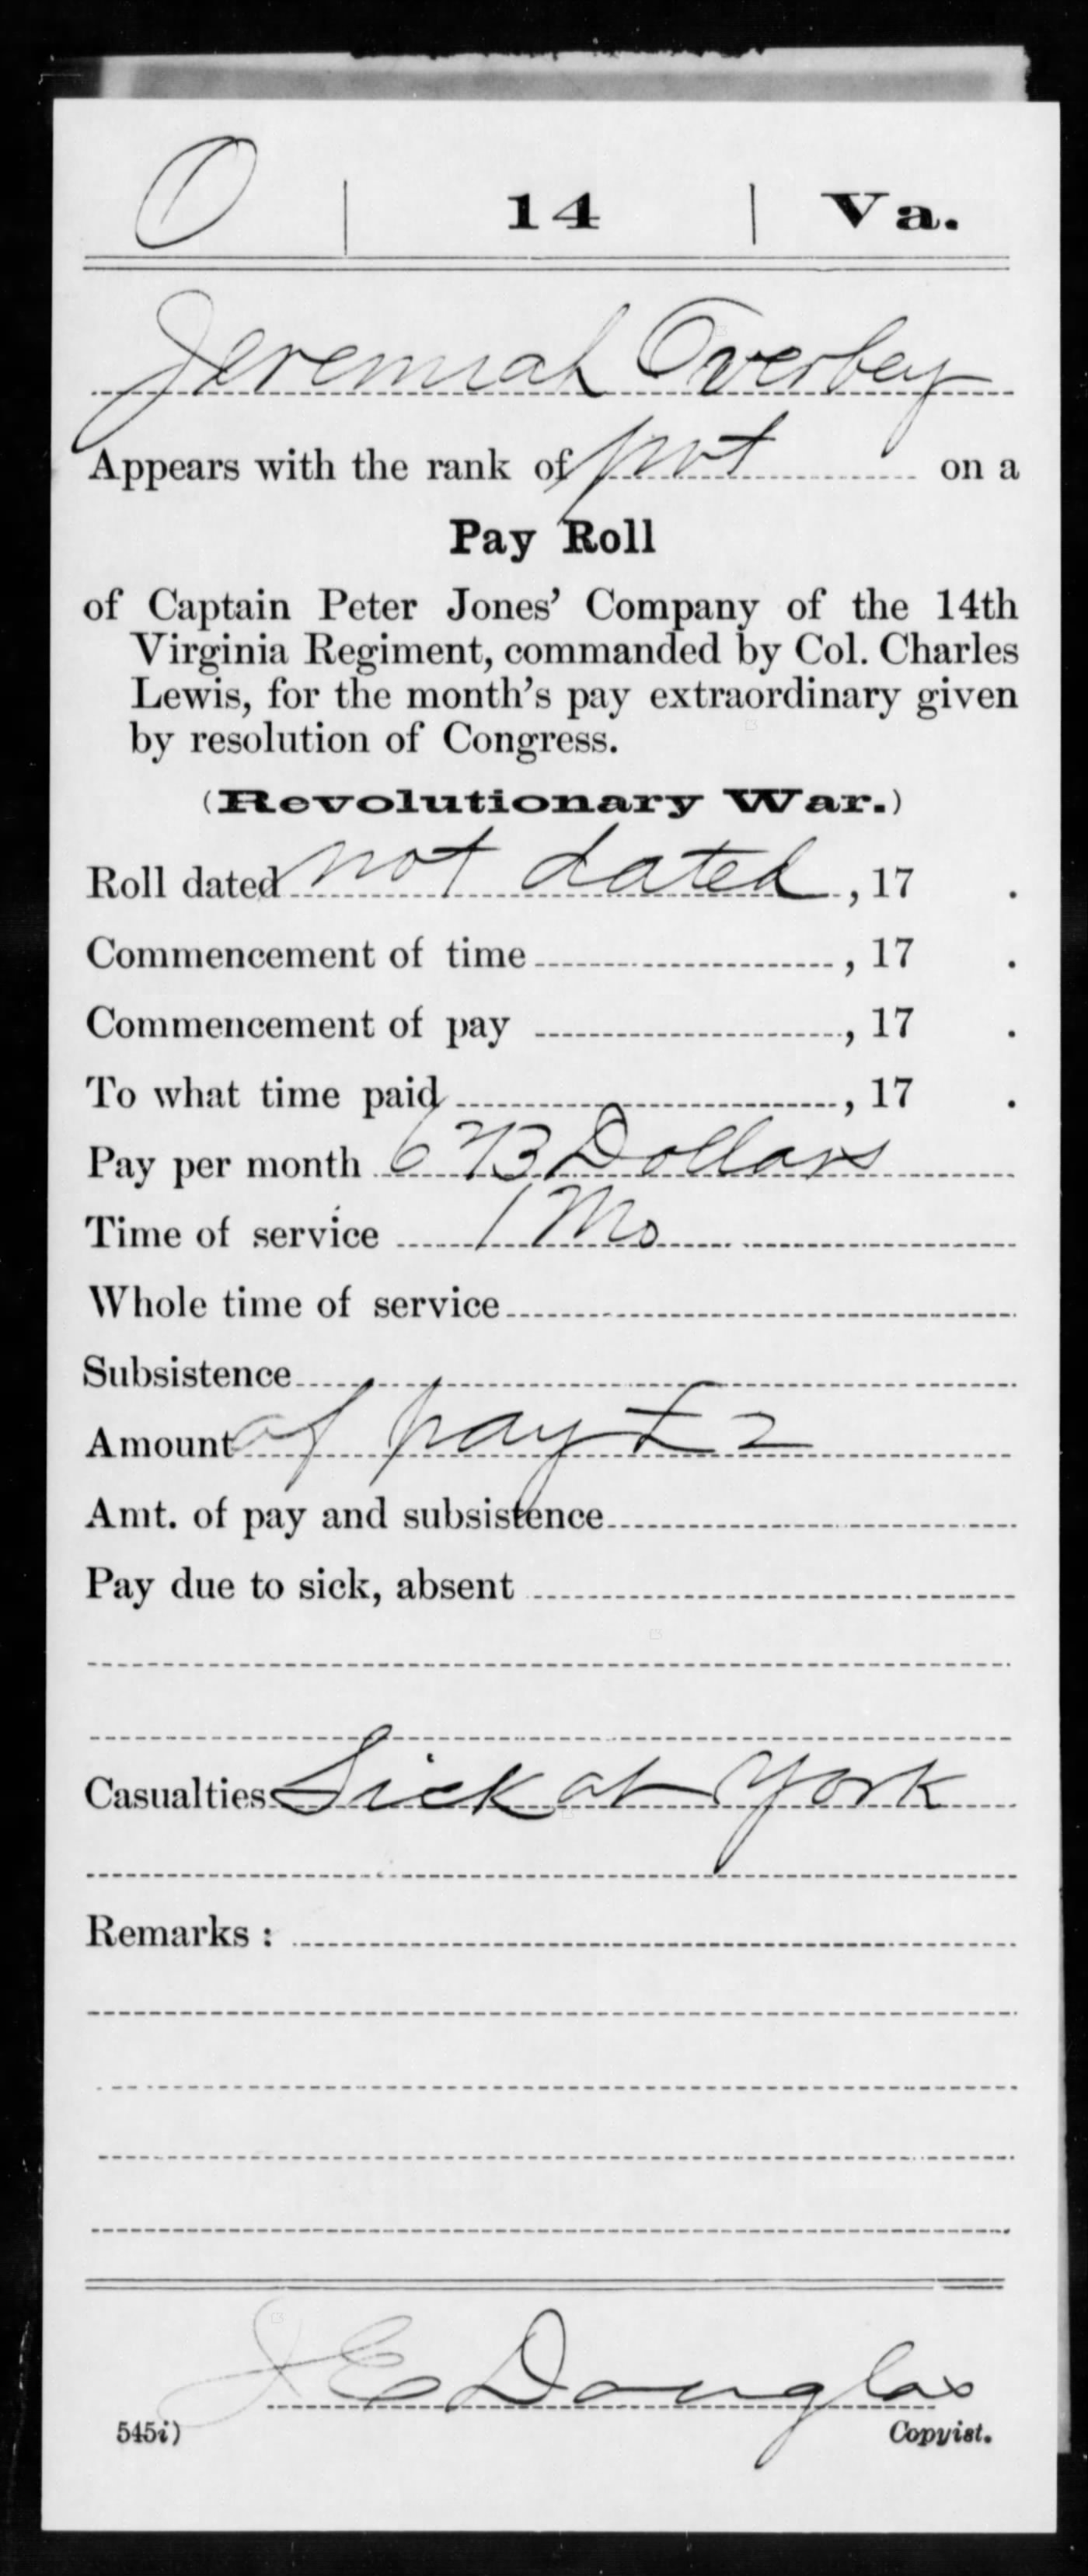 O | 14 | Va.
Jeremiah Overbey
Appears with the rank of pvt on a
Pay Roll
of Captain Peter Jones' Company of the 14th
Virginia Regiment, commanded by Col. Charles
Lewis, for the month's pay extraordinary given
by resolution of Congress.
(Revolutionary War.)
Roll dated not dated, 17 .
Commencement of time , 17 .
Commencement of pay , 17 .
To what time paid , 17 .
Pay per month 6 2/3 Dollars
Time of service 1 Mo
Whole time of service
Subsistence
Amount of pay £ 2
Amt. of pay and subsistence
Pay due to sick, absent
Casualties Sick at York
Remarks :
J E Douglas
545i) Copyist.